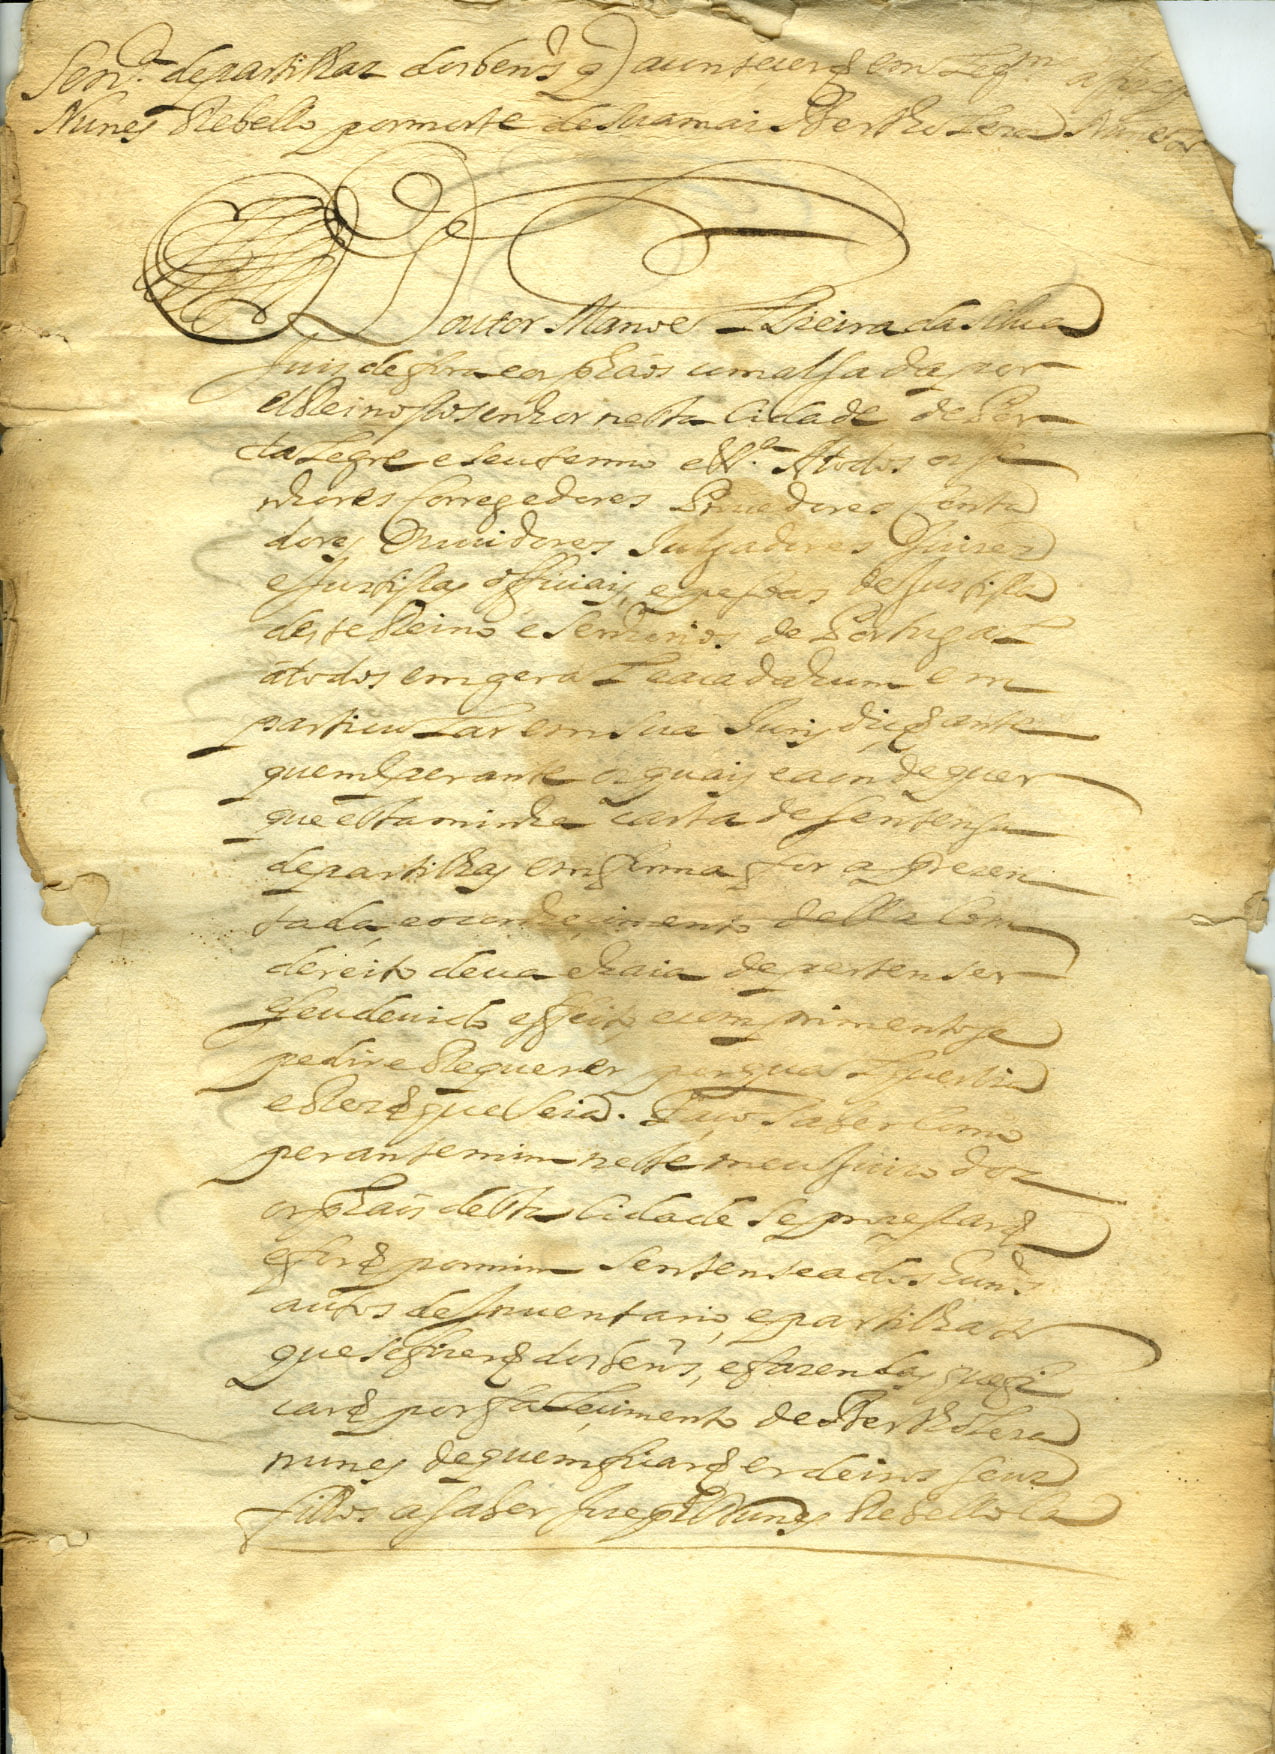 Senᶜᵃ de partilhas dos bens q̃ acontecerã em Legᵐᵃ a Jozeph
Nunes Rebello por morte de sua mai Bertholeza Nunes
O Doutor Manoel Vieira da Silva
Juis de fora e orphãos com alsada por
el Rei nosso senhor nesta Cidade de Por
talegre e seu termo ett.ª A todos os se
nhores Corregedores Provedores Conta
dores Ouvidores Julgadores Juizes
e Justisas officiais, e pessoas de Justisa
deste Reino e senhorios de Portugal
a todos em geral e a cada hum em
particular em sua Jurisdicã ante
quem e perante os quais e aonde quer
que esta minha carta de sentensa
de partilhas em forma for aprezen
tada e o conhecimento della Com
dereito deva e haia de pertenser
e seu devido effeito e comprimento se
pedir e Requerer por qualquer via
e Rezã que seia. Faço saber Como
perante mim neste meu Juizo dos
orphãos desta Cidade se prosesarã
e forã por mim sentenseados huns
autos de Inventario, e partilhas
que se fizerã dos bens, e fazendas que fi
carã por falecimento de Bertholeza
nunes de quem ficarã erdeiros seus
filhos a saber Jozeph Nunes Rebello ca